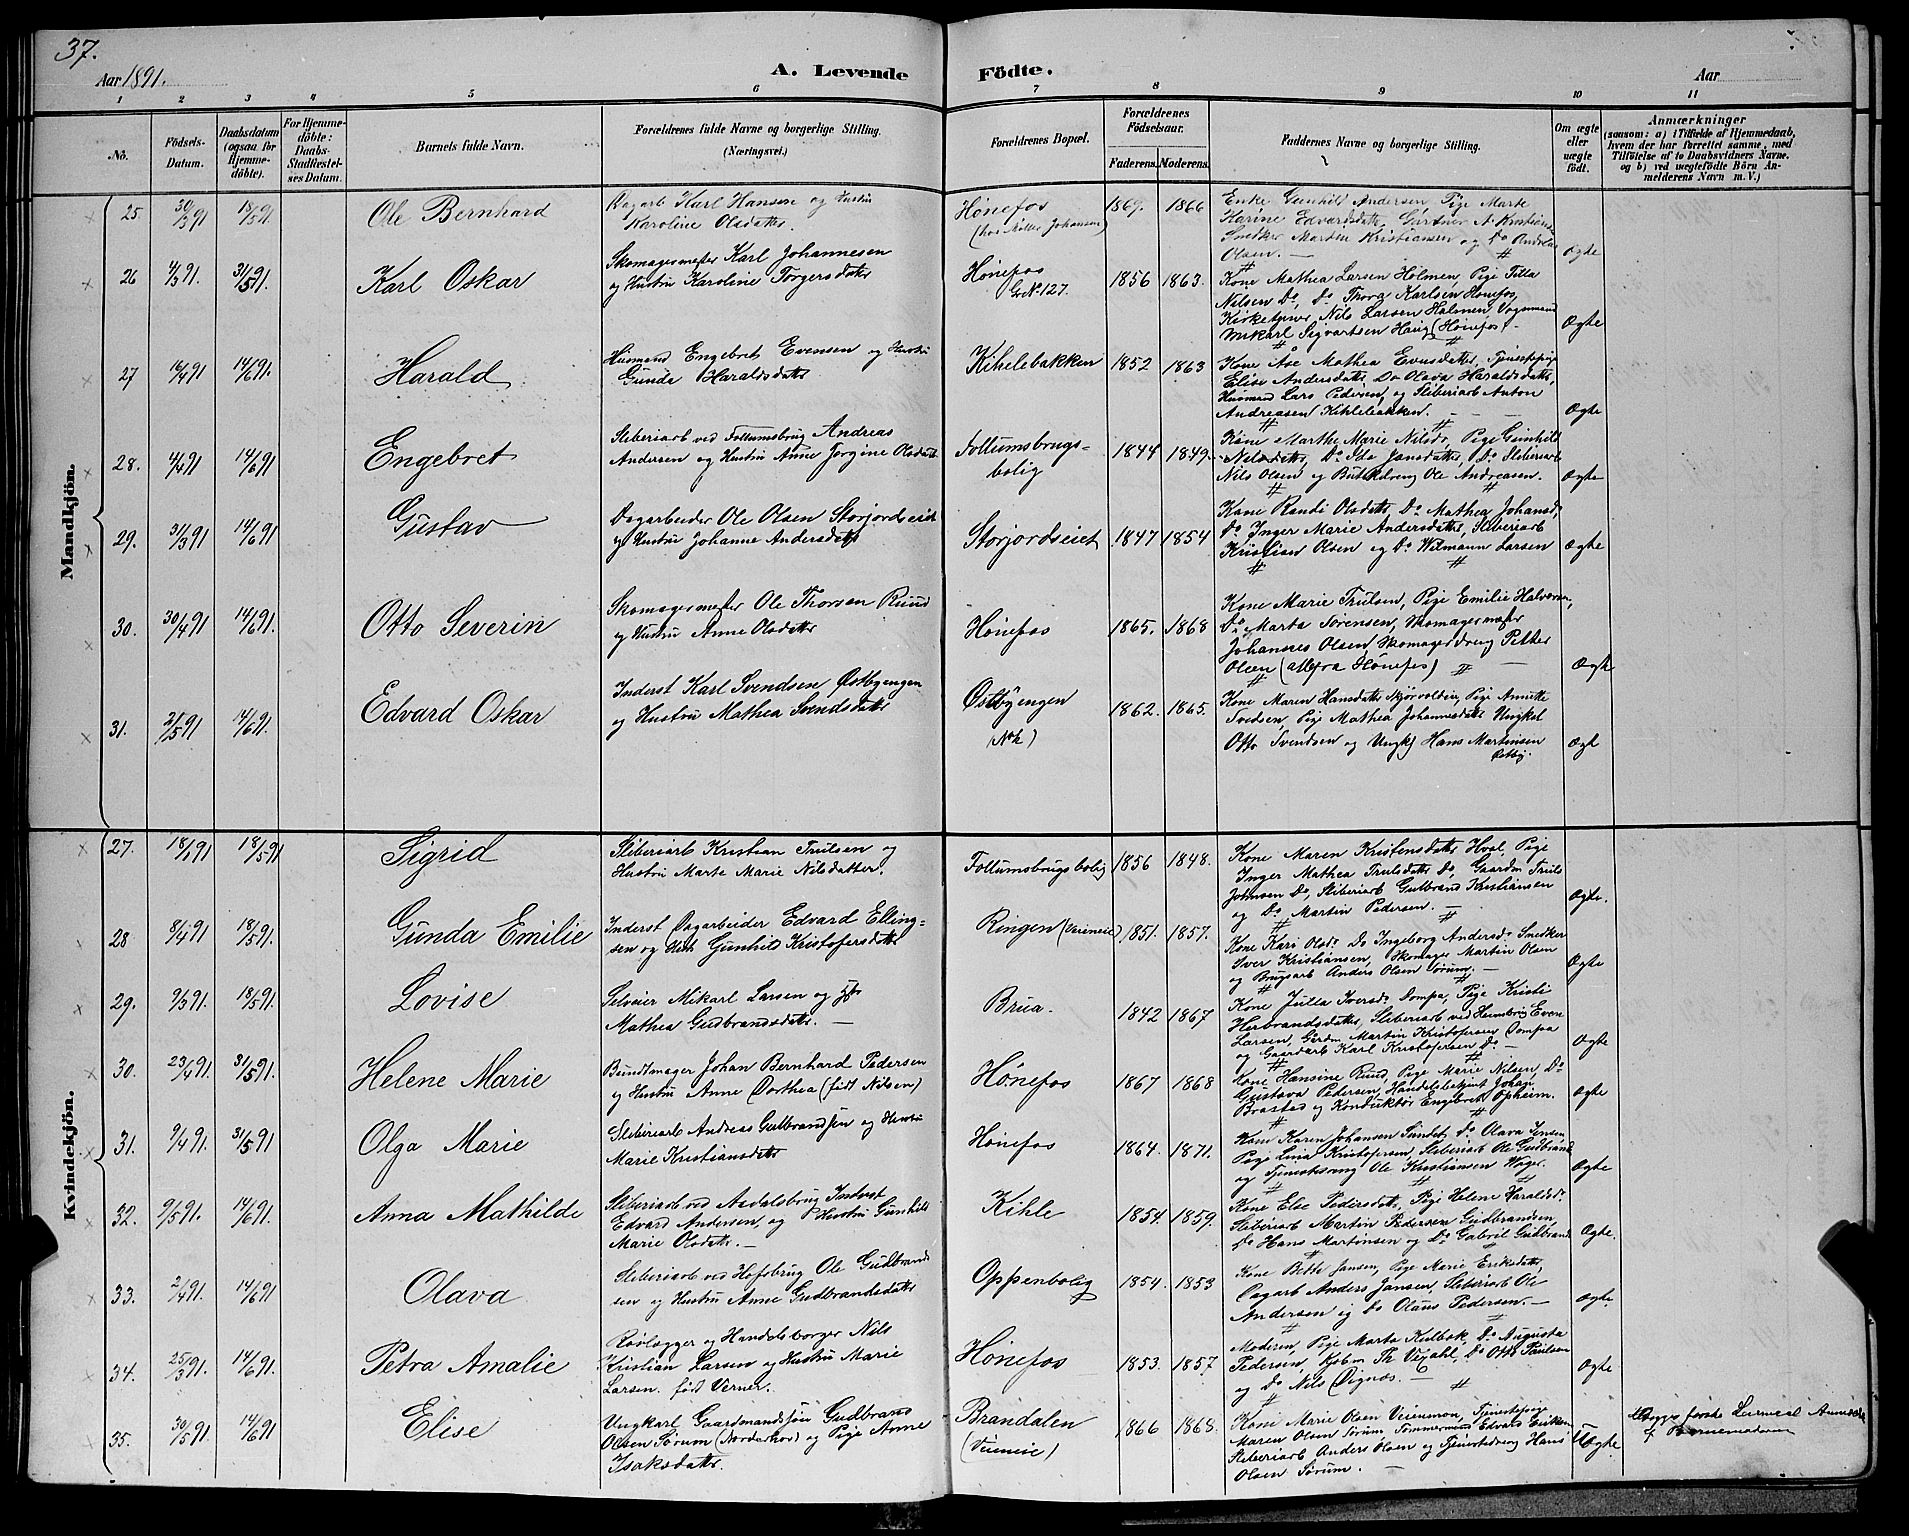 37.
Aar 1891.
A. Levende Födte.
Aar
1 2 3 4 5 6 7 8 9 10 11
No.
Födsels-Datum.
Daabsdatum (ogsaa for Hjemme-döbte).
For Hjemme-döbte: Daabs-Stadfæstel-ses Datum.
Barnets fulde Navn.
Forældrenes fulde Navne og borgerlige Stilling. (Næringsvei.)
Forældrenes Bopæl.
Forældrenes Födselsaar.
Faderens. Moderens.
Faddernes Navne og borgerlige Stilling.
Om ægte eller uægte födt.
Anmærkninger
(saasom: a) i Tilfælde af Hjemmedaab, hvem der har forrettet samme, med Tilföielse af to Daabsvidners Navne, og b) ved uægtefödte Börn An-melderens Navn m. V.)
Mandkjön.
25 30/3 91 18/5 91. Ole Bernhard
Dagarb Karl Hansen og Hustru
Karoline Olsdatter.
Hønefos
(hos Møller Johansen)
1869. 1866
Enke Gunhild Andersen, Pige Marte
Karine Edvardsdatt, Gardner A. Kristians
Snedker Martin Kristiansen og Do Andreas
Olsen. —
Ægte
26 4/3 91. 31/5 91. Karl Oskar
Skomagermester Karl Johannesen
og Hustru Karoline Torgersdatter
Hønefos
G.No 127.
1856 1863.
Kone Mathea Larsen Holmen, Pige Tilla
Nilsen Do, Do Thora Karlsen Hønefos,
Kirketjener Nils Larsen Holmen, Vognmand
Mikarl Sigvartsen Haug (Hønefos) -
Ægte
27 16/4 91 14/6 91. Harald
Husmand Engebret Evensen og Hustru
Gunda Haraldsdatter
Kihlebakken
1852 1863
Kone Åse Mathea Evensdatter, Tjenestepige
Elise Andersdatter, Do Olava Haraldsdatter,
Husmand Lars Pedersen, og Sliberiarb Anton
Andreasen Kihlebakken.
Ægte
28. 4/4 91 14/6 91 Engebret
Sliberiarb ved Follumsbrug Andreas
Andersen og Hustru Anne Jorgine Olsdatter
Follumsbrugs-
bolig
1844 1849.
Kone Marthe Marie Nilsdr, Pige Gunhild
Nilsdatter, Do Ida Jansdatter, Do Sliberiarb
Nils Olsen og Butikdreng Ole Andreasen.
Ægte
29. 31/3 91 14/6 91 Gustav
Dagarbeider Ole Olsen Storjordseiet
og Hustru Johanne Andersdatter
Storjordseiet
1847 1854
Kone Randi Olsdatter Do Mathea Johansdr,
Do Inger Marie Andersdatter, Sliberiarb
Kristian Olsen og Do Wilmann Larsen
Ægte
30. 30/4 91 14/6 91. Otto Severin
Skomagermester Ole Thorsen Ruud
og Hustru Anne Olsdatter
Hønefos
1865. 1868
Kone Marie Trulsen, Pige Emilie Halvorsen,
Do Marta Sørensen, Skomagermester
Johannes Olsen, Skomagerdreng Petter
Olsen (alle fra Hønefos)
Ægte
31. 2/5 91 14/6 91. Edvard Oskar
Inderst Karl Svendsen Østbyengen
og Hustru Mathea Svendsdatter
Østbyengen
1862. 1865.
Kone Maren Hansdatter Skjørvolden, Pige Annette
Svedsen, Pige Mathea Johannesdatter Ungkal
Otto Svendsen og Ungk Hans Martinsen
Østby.
Ægte
Kvindekjön.
27. 18/1 91 18/5 91 Sigrid
Sliberiarb Kristian Trulsen og
Hustru Marte Marie Nilsdatter.
Follumsbrugsbolig
1856 1848.
Kone Maren Kristensdatter Hval, Pige
Inger Mathea Trulsdatter Do, Gaardm Truls
Johnsen Do, Sliberiarb Gulbrand Kristiansen
og Do Martin Pedersen. —
Ægte.
28 8/4 91 18/5 91. Gunda Emilie
Inderst Dagarbeider Edvard Elling-
sen og Hust Gunhild Kristofersdatter
Ringen (Veimeie)
1851. 1857.
Kone Kari Olsdr Do Ingeborg Andersdr Snedker
Iver Kristiansen, Skomager Martin Olsen
og Brugsarb Anders Olsen Sørum. —
Ægte
29. 9/3 91. 18/5 91. Lovise
Selveier Mikarl Larsen og
Mathea Gudbrandsdatter. —
Brua.
1842 1867
Kone Julla Iversdr Dompa, Pige Kristi
Herbrandsdatter, Sliberiarb ved Heimbrug Even
Larsen, Grdm Martin Kristofersen Dompa
og Gaardarb Karl Kristofersen Do —
Ægte
30. 23/4 91. 31/5 91. Helene Marie
Bundtmager Johan Bernhard Pedersen
og Hustru Anne Dorthea (født Nilsen)
Hønefos
1867 1868
Kone Hansine Ruud, Pige Marie Nilsen, Do
Gustava Pedersen, Handelsbetjent Johan
Brastad og Konduktør Engebret Opheim.
Ægte
31. 9/4 91. 31/5 91 Olga Marie
Sliberiarb Andreas Gulbrandsen og Hustru
Marie Kristiansdatter
Hønefos
1864. 1871.
Kone Karen Johansen Sundet, Do Olava Jensen
Pige Lina Kristofersen, Sliberiarb Ole Gudbrands
og Tjenestedreng Ole Kristiansen Wager.
Ægte
32. 9/5 91. 14/6 91. Anna Mathilde
Sliberiarb ved Aadalsbrug Inderst
Edvard Andersen, og Hustru Gunhild
Marie Olsdatter. —
Kihle
1854. 1859.
Kone Else Pedersdatter, Pige Helene Haraldsdr
Sliberiarb Martin Pedersen Gudbrandsen,
Do Hans Martinsen og Do Gabril Gudbrands
Ægte.
33. 2/4 91. 14/6 91 Olava
Sliberiarb ved Hofsbrug Ole Gudbrand
sen og Hustru Anne Gudbrandsdatter
Oppenbolig
1854. 1853
Kone Berthe Jansen, Pige Marie Eriksdatter,
Dagarb Anders Jansen, Sliberiarb Ole
Andersen og Do Olaus Pedersen. —
Ægte.
34. 25/3 91. 14/6 91. Petra Amalie
og Handelsborger Nils
Kristian Larsen og Hustru Marie
Larsen. født Verner.
Hønefos
1853. 1857
Moderen, Pige Marta Kulbok, Do Augusta
Pedersen, Kjøbm Th Vegahl, Do Otto Paulsen
og Do Nils Oignæs. —
Ægte
35. 30/5 91 14/6 91 Elise
Ungkarl Gaardmandssøn Gudbrand
Olsen Sørum (Norderhov) og Pige Anne
Isaksdatter.
Brandalen
(Veimeie)
1866 1868.
Kone Marie Olsen Veienmon, Tjenestepige
Maren Olsen Sørum, Tømmermand Edvard Eriksen
Sliberiarb Anders Olsen og Tjenestedreng Hans
Olsen Sørum. —
Uægte